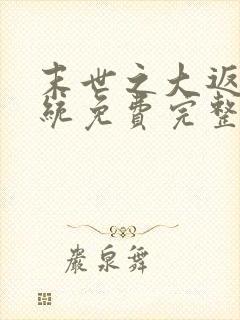 末世之大返
统免费完整
岩泉舞